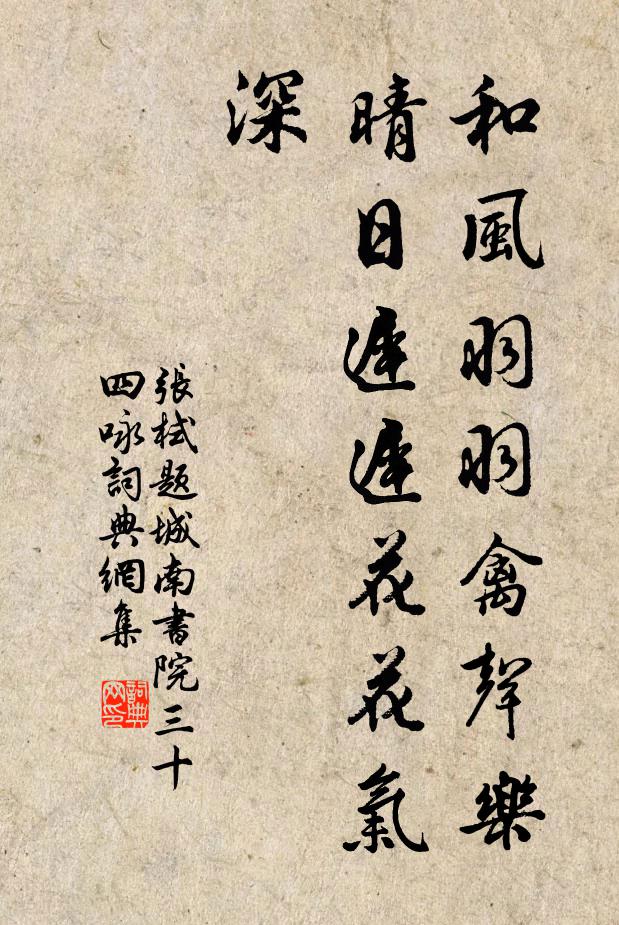 和風羽羽禽聲樂
晴日遲遲花花氣
深
張栻題城南書院三十
四咏詞典網集
詞典
网印